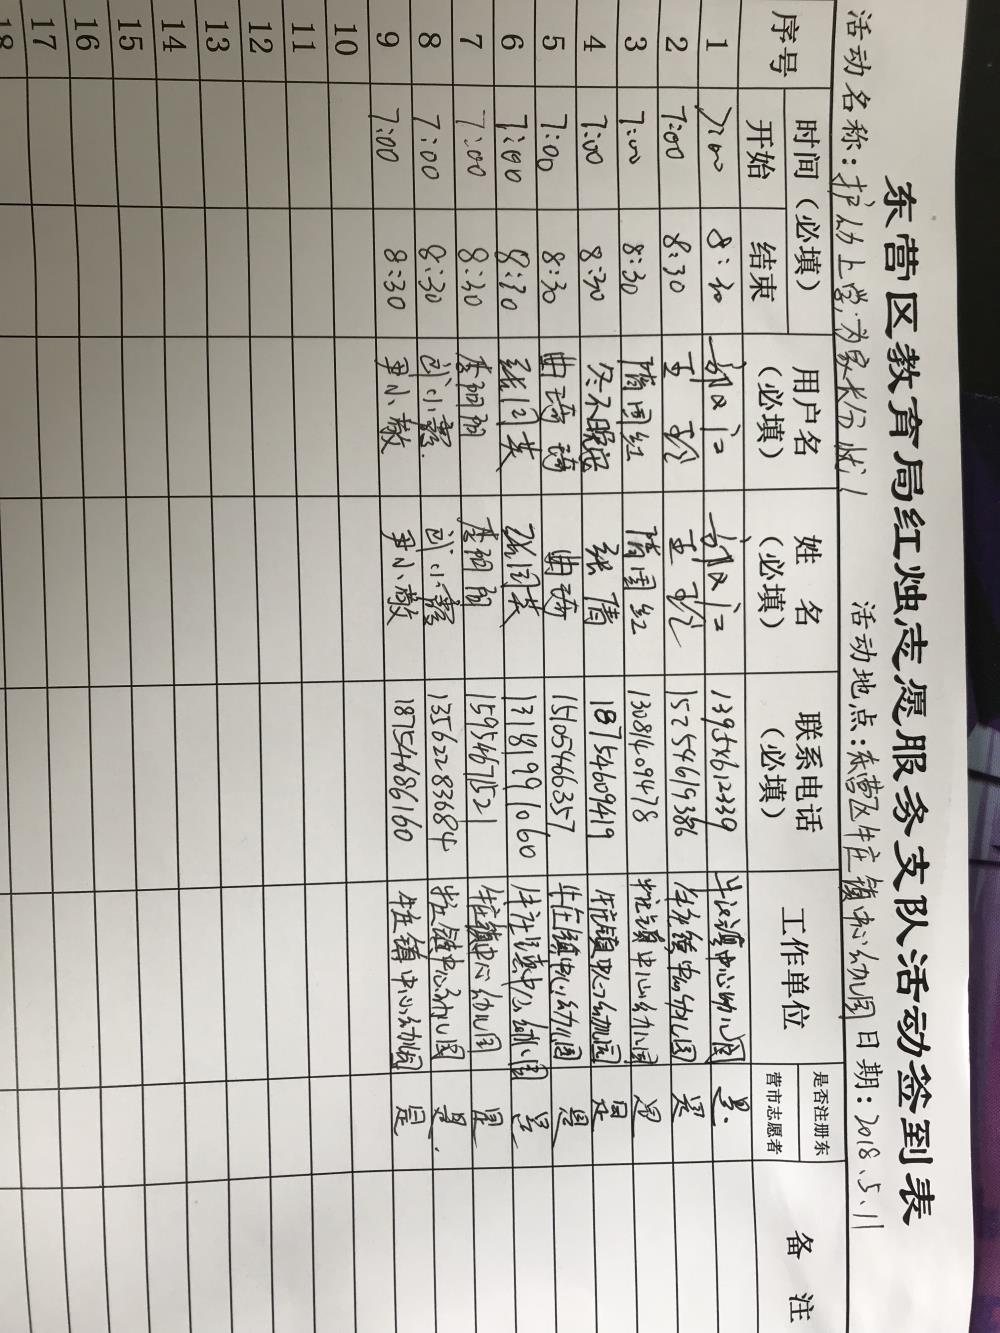 东营区教育局红烛志愿服务支队活动签到表
活动名称：护幼上学，为家长分忧 活动地点：东营区牛庄镇中心幼儿园 日期：2018.5.11
序号 时间（必填） 用户名（必填） 姓 名（必填） 联系电话（必填） 工作单位 是否注册东营市志愿者 备 注
开始 结束
1 7:00 8:30 13954612339 牛庄镇中心幼儿园 是
2 7:00 8:30 15254619386 牛庄镇中心幼儿园 是
3 7:00 8:30 隋国红 隋国红 13081409478 牛庄镇中心幼儿园 是
4 7:00 8:30 冬不晚安 张倩 18754609419 牛庄镇中心幼儿园 是
5 7:00 8:30 曲琦琦 曲琦 15105466357 牛庄镇中心幼儿园 是
6 7:00 8:30 张同英 张同英 13181991060 牛庄镇中心幼儿园 是
7 7:00 8:30 李丽丽 李丽丽 15954671521 牛庄镇中心幼儿园 是
8 7:00 8:30 武小霞 武小霞 13562283684 牛庄镇中心幼儿园 是
9 7:00 8:30 尹小敏 尹小敏 18754686160 牛庄镇中心幼儿园 是
10
11
12
13
14
15
16
17
18